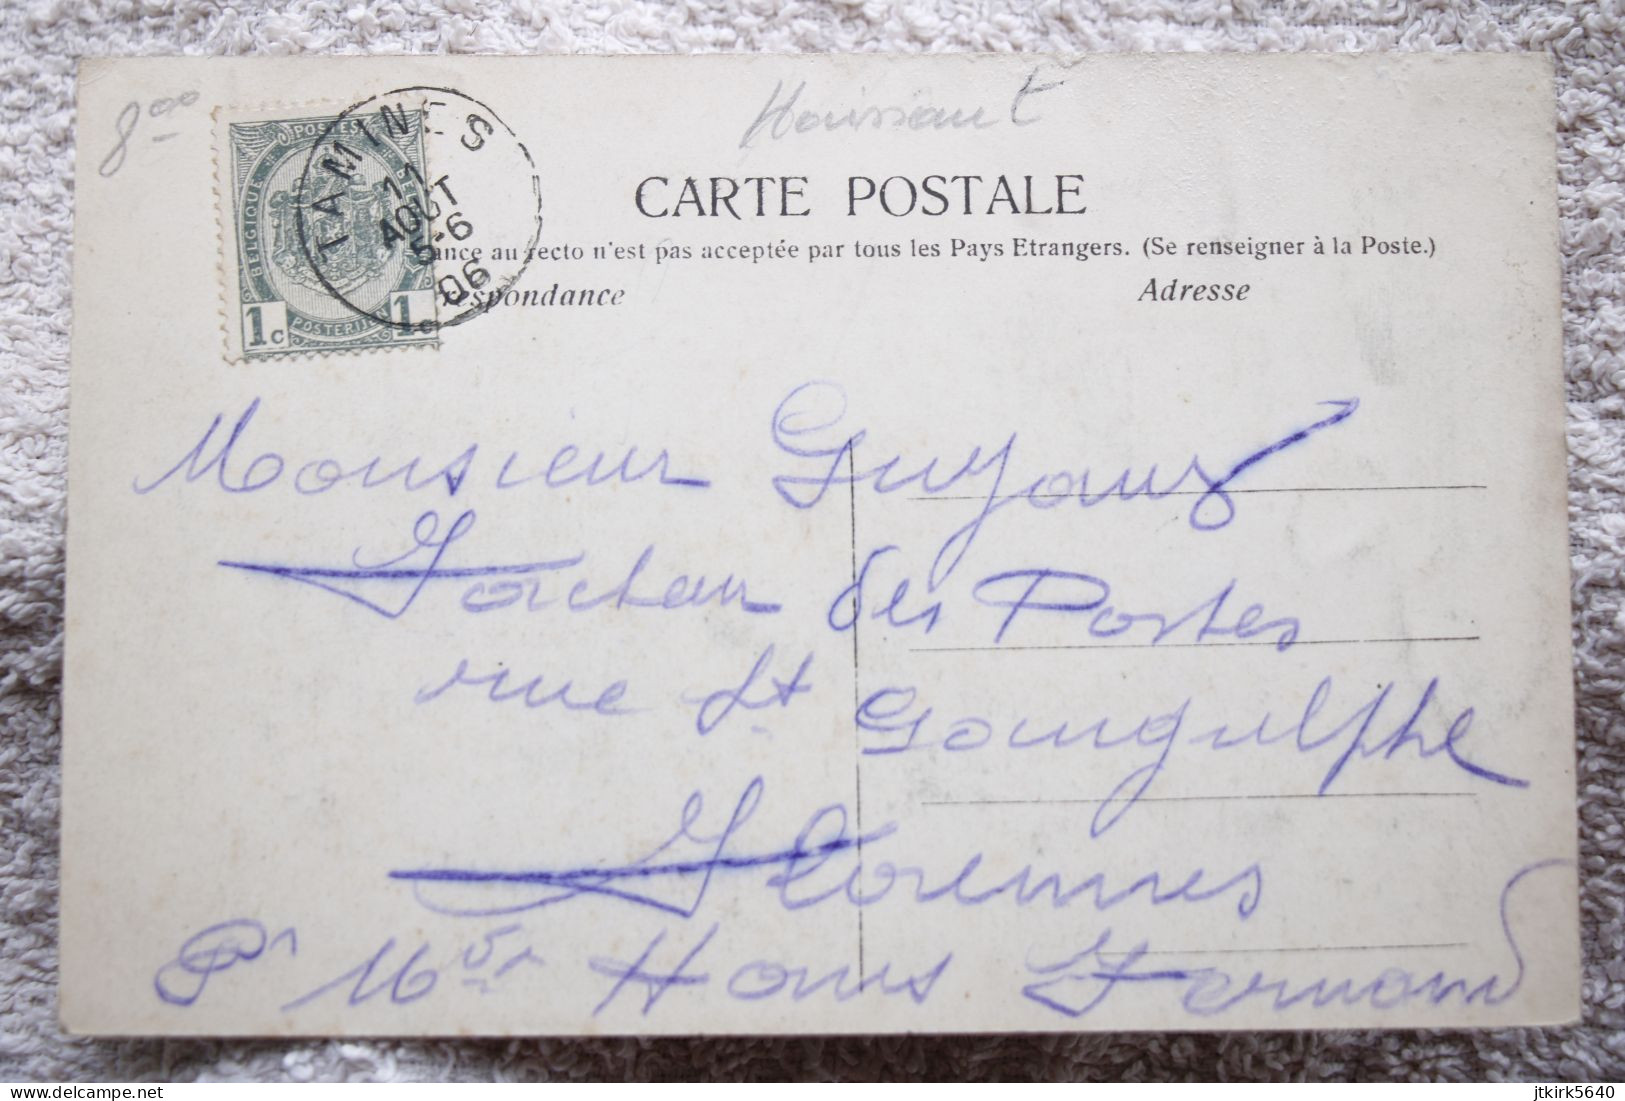 8⁰⁰
Houssaut
POSTES
BELGIQUE
BELGIË
1c 1c
POSTERIJEN
TAMINES
11
AOUT
5-6
06
CARTE POSTALE
ance au recto n'est pas acceptée par tous les Pays Etrangers. (Se renseigner à la Poste.)
respondance
Adresse
Monsieur Guyaux
Facteur des Postes
rue St Gangulphe
Florennes
Pr Mr Fernand
jtkirk5640